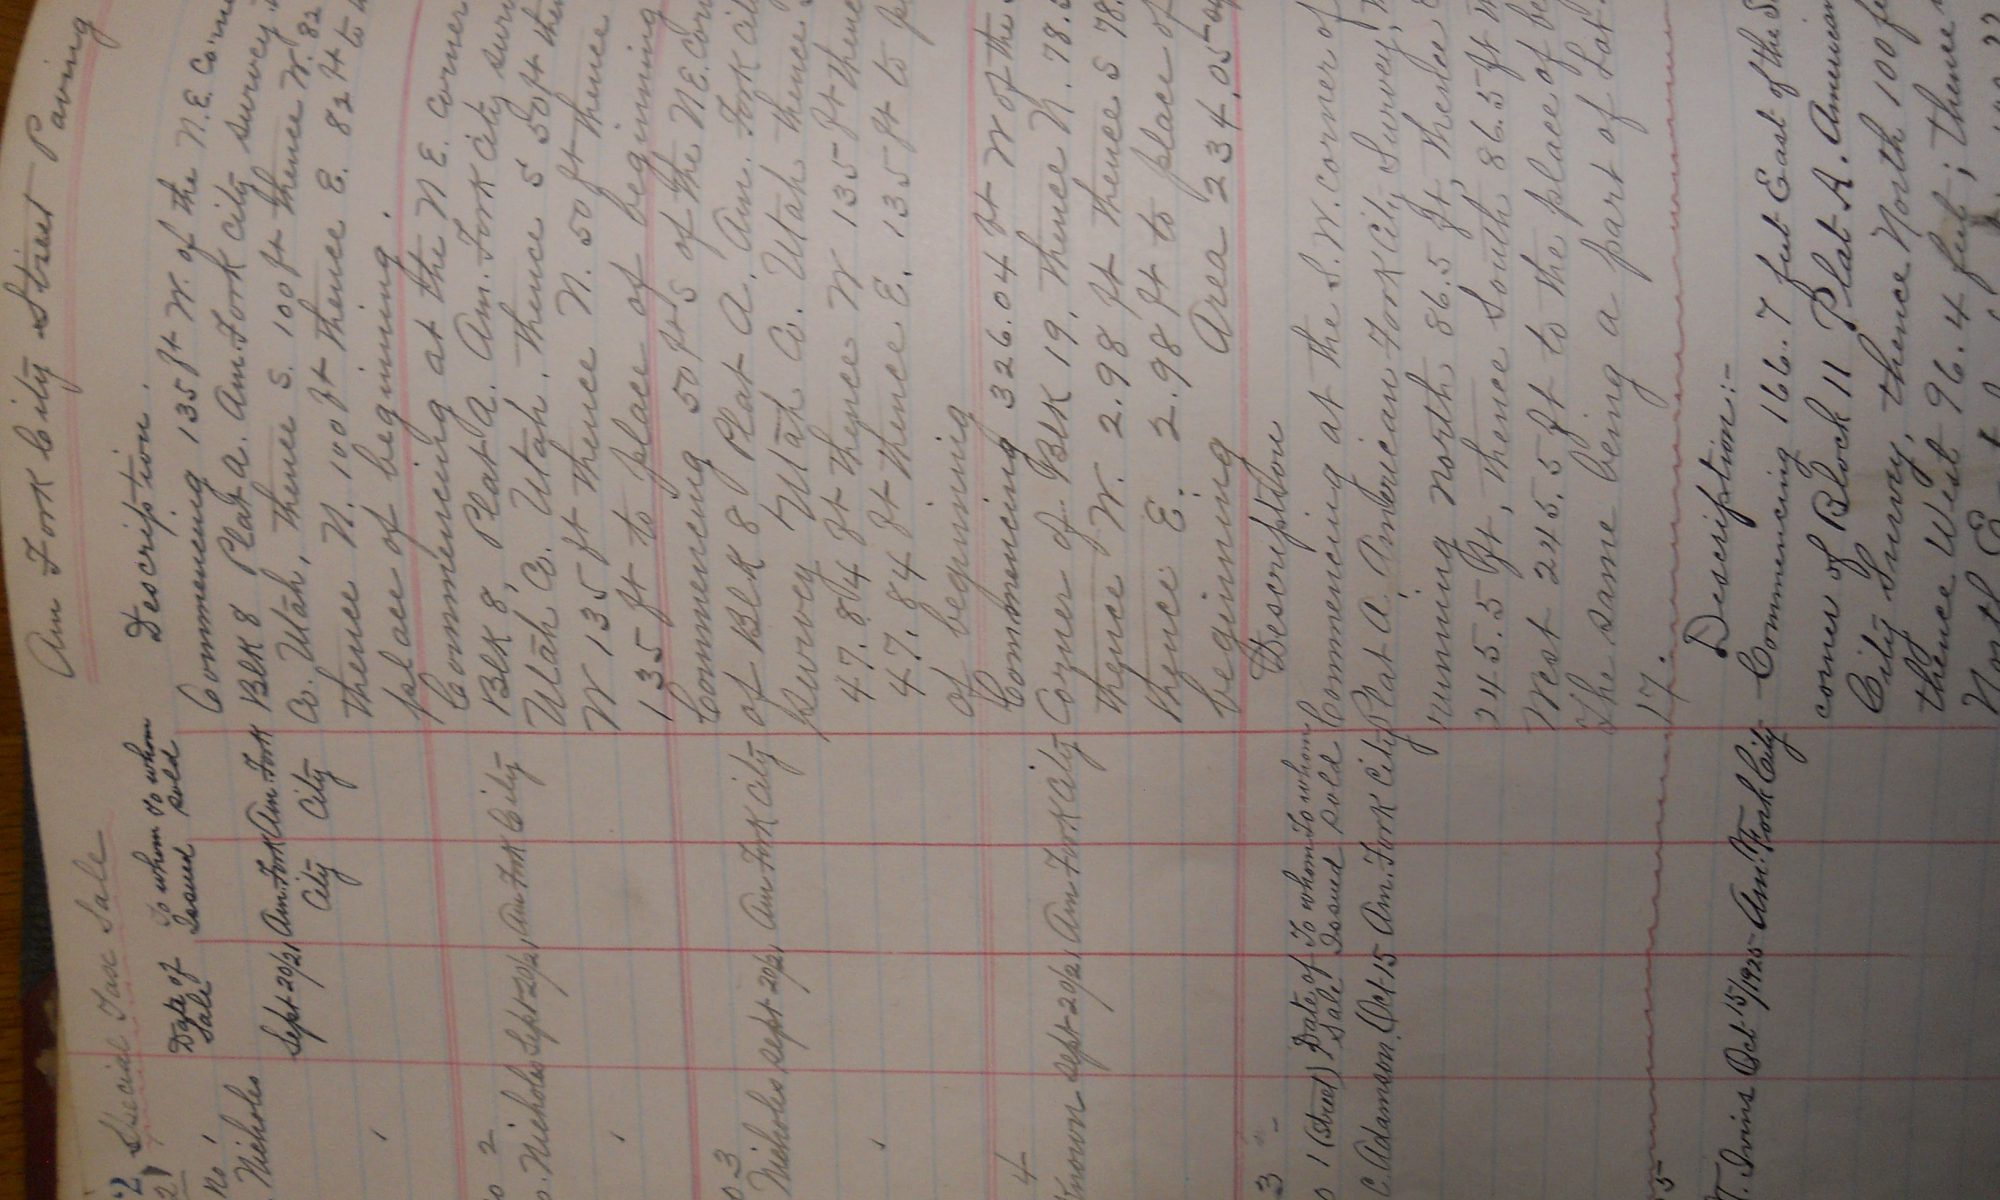 Special Tax Sale Am Fork City Street Paving
Date of Sale To whom Issued To whom sold Description.
No 1
Nicholes Sept 20/21 Am. Fork City Am. Fork City
Commencing 135 ft W. of the N.E. Corne
Blk 8 Plat A. Am. Fork City survey
Co. Utah, thence S. 100 ft thence W. 82
thence N. 100 ft thence E. 82 ft to
place of beginning.
2
Nicholes Sept 20/21 Am Fork City
Commencing at the N E. Corner
Blk 8, Plat A. Am. Fork City surv
Utah Co. Utah. Thence S 50 ft then
W 135 ft thence N. 50 ft thence
135 ft to place of beginning
3
Nicholes Sept 20/21 Am Fork City
Commencing 50 ft S of the N.E. Corn
of Blk 8 Plat A. Am. Fork City
Survey Utah Co. Utah thence
47.84 ft thence W 135 ft thence
47.84 ft thence E. 135 ft to p
of beginning
4
known Sept 20/21 Am Fork City
Commencing 326.04 ft W of the
Corner of Blk 19, thence N. 78.
thence W. 2.98 ft thence S 78.
thence E. 2.98 ft to place of
beginning Area 234.05
3
1 (Street) Date of Sale To whom Issued To whom sold Description
C. Adamson. Oct 15 Am. Fork City
Commencing at the S.W. Corner of
Plat A. American Fork City Survey,
running North 86.5 ft, thence
245.5 ft, thence South 86.5 ft
West 245.5 ft to the place of be
the same being a part of Lot
17.
5
Description:-
T. Ivins Oct 15, 1925 Am. Fork City
Commencing 166.7 feet East of the S.
corner of Block 11 Plat A. American
City Survey, thence North 100 fe
thence West 96.4 feet; thence